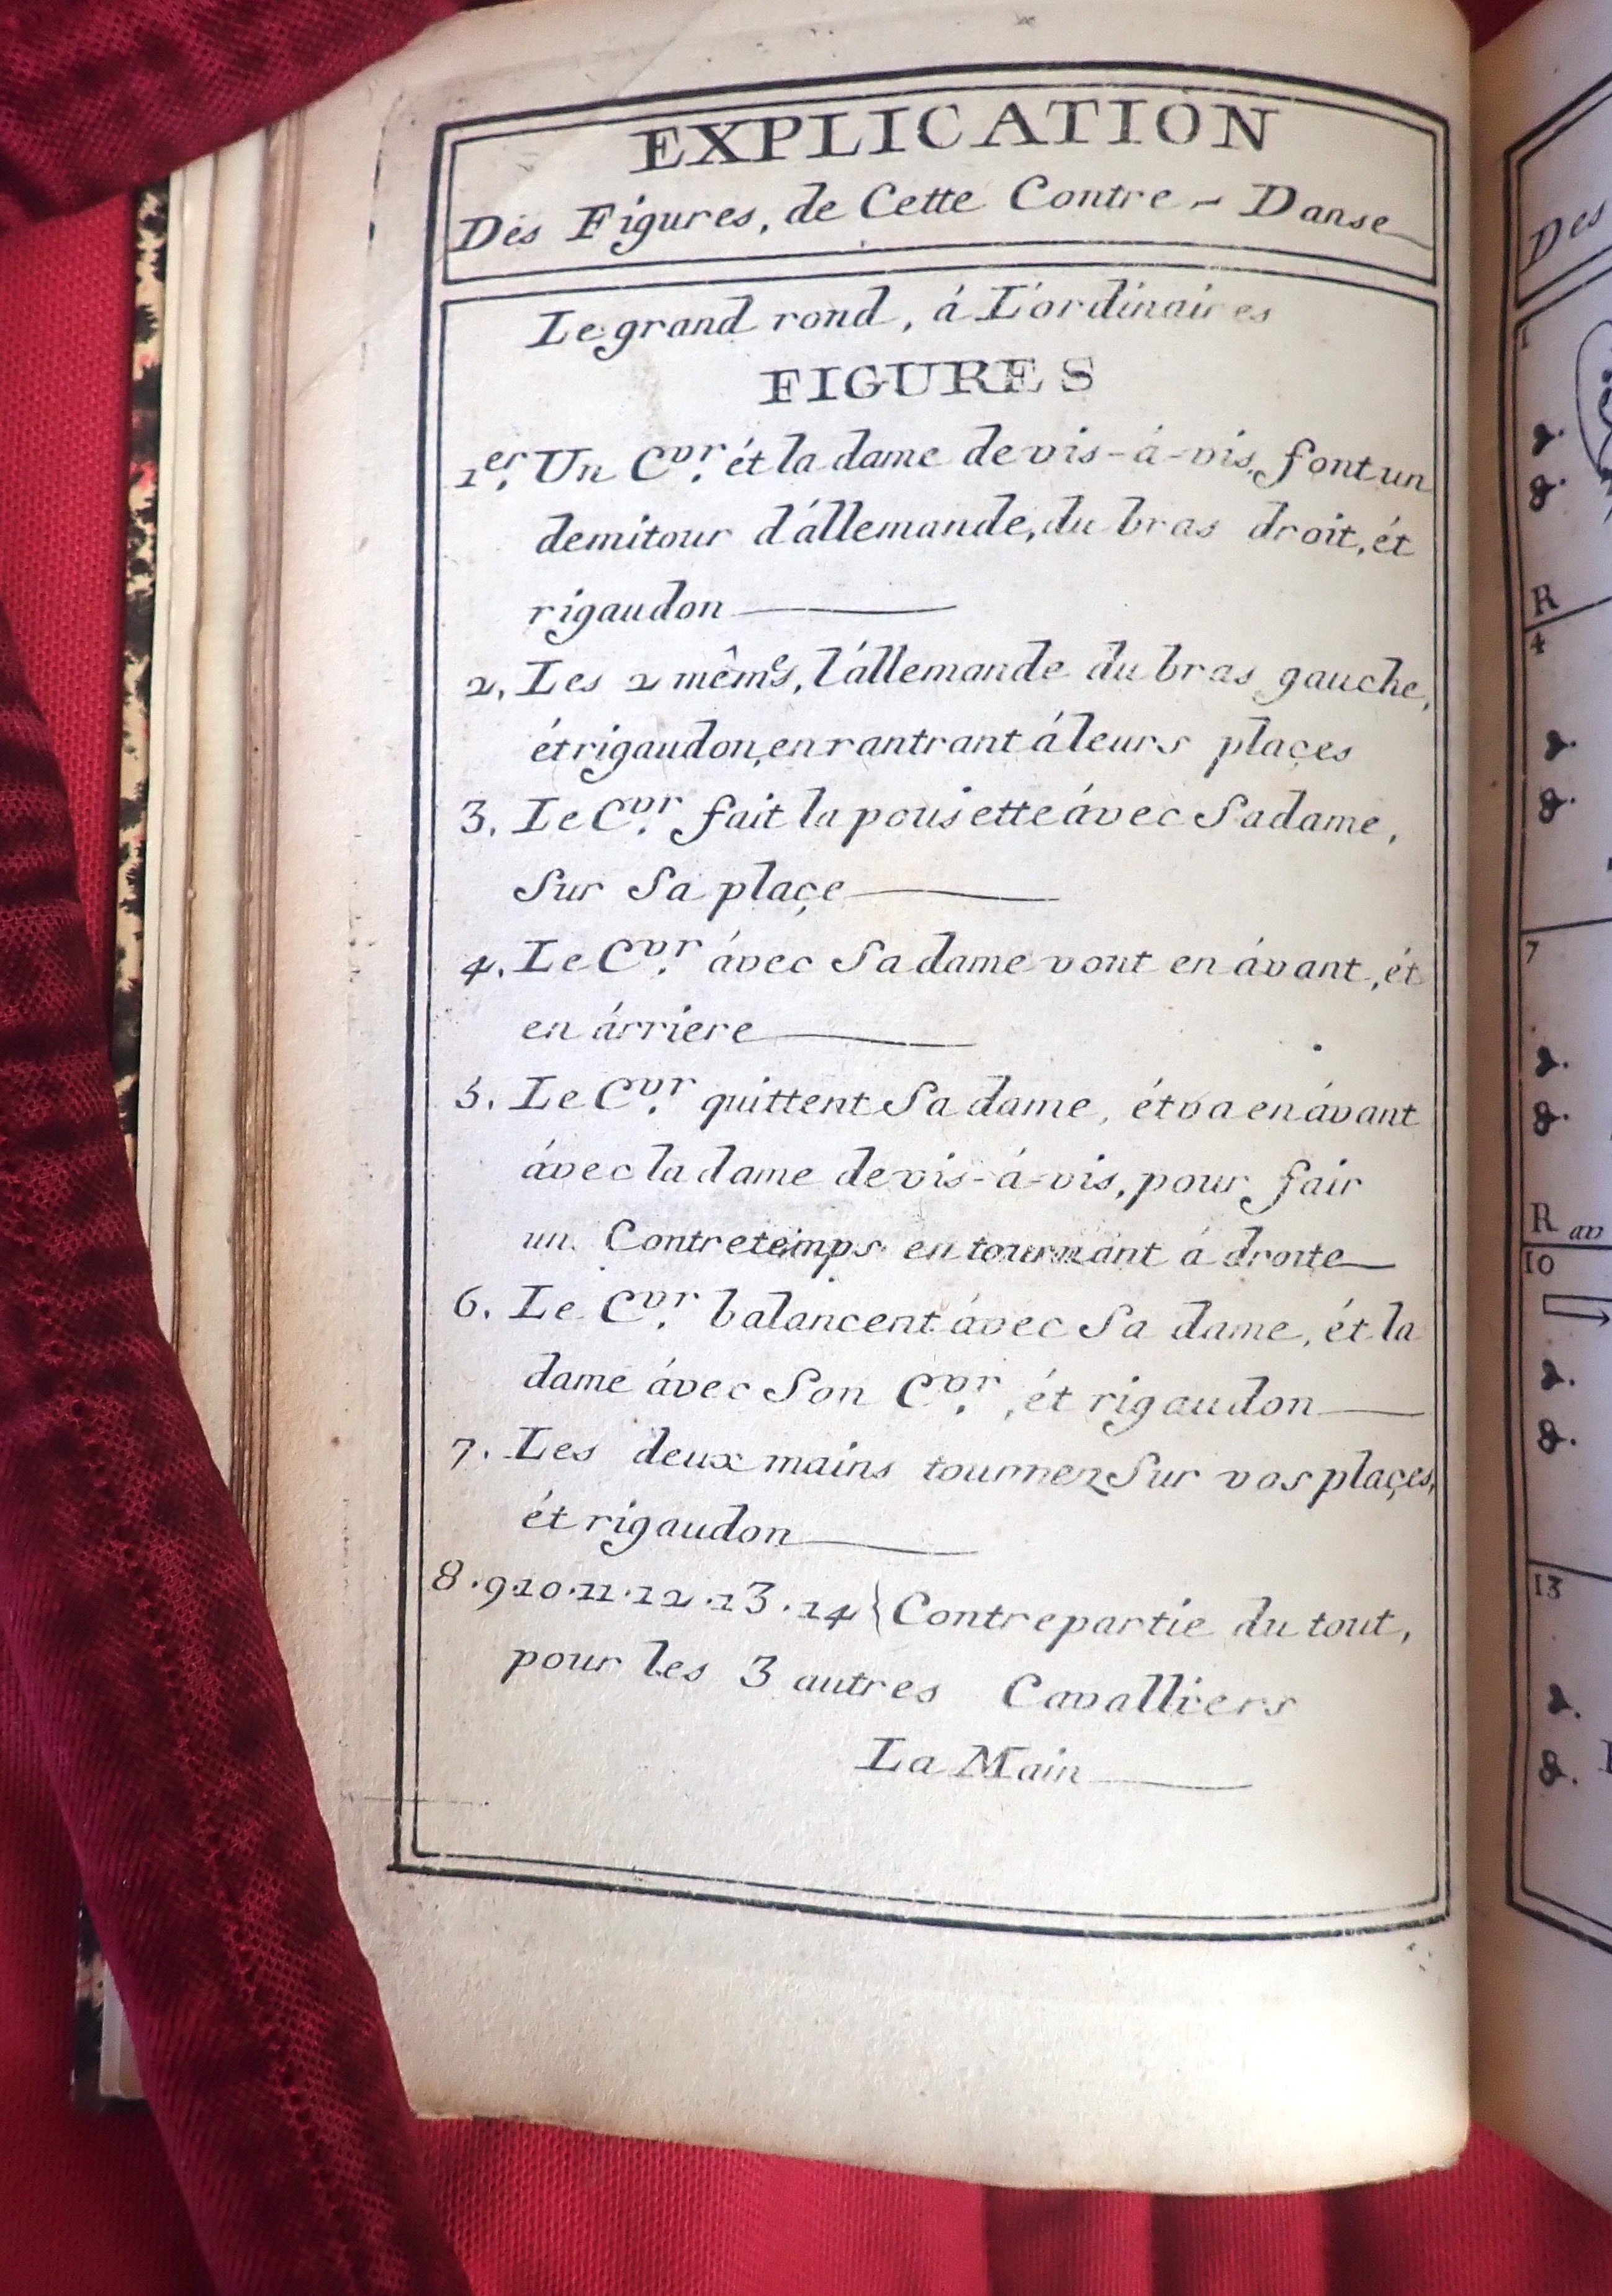 EXPLICATION
Des Figures, de Cette Contre - Danse
Le grand rond, á L'ordinaires
FIGURES
1er. Un Cvr. ét la dame de vis-á-vis, font un
demi tour d'állemande, du bras droit, ét
rigaudon
2. Les 2 mêmes, l'állemande du bras gauche,
ét rigaudon, en rantrant á leurs plaçes
3. Le Cvr. fait la pousette ávec Sa dame,
Sur Sa plaçe
4. Le Cvr. ávec Sa dame vont en ávant, ét
en árriere
5. Le Cvr. quittent Sa dame, ét va en ávant
ávec la dame de vis-á-vis, pour fair
un Contretemps en tournant á droite
6. Le Cvr. balancent ávec Sa dame, ét la
dame ávec Son Cvr., ét rigaudon
7. Les deux mains tournez Sur vos plaçes,
ét rigaudon
8.9.10.11.12.13.14 } Contrepartie du tout,
pour les 3 autres Cavalliers
La Main
Des
1
8.
R
4
8.
7
8.
R av
10
8.
13
8.